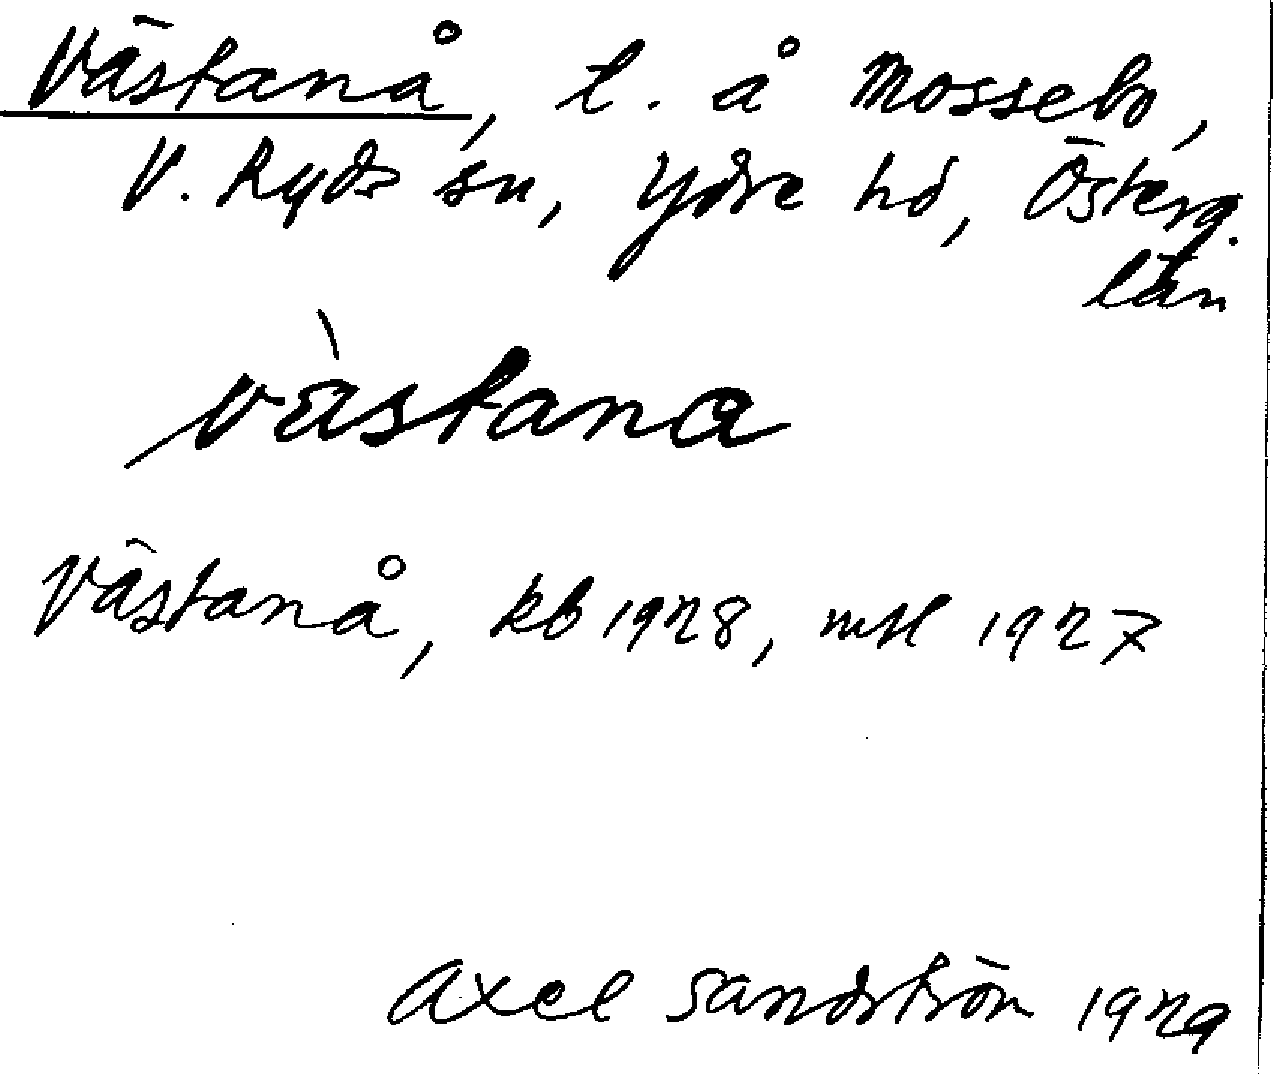 Västanå, t. å Mossebo,
V. Ryds sn, Ydre hd, Österg.
län
vàstana
Västanå, kb 1928, mtl 1927
Axel Sandström 1929